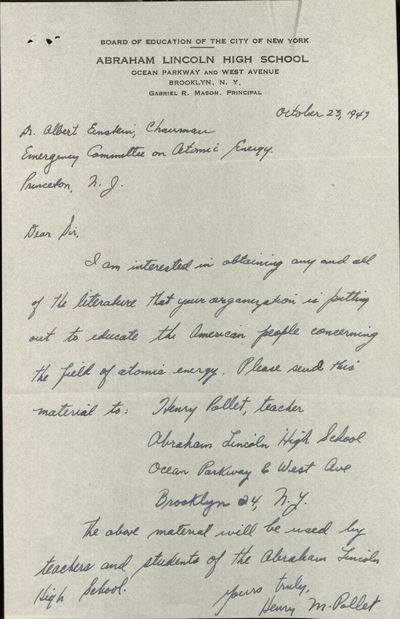 BOARD OF EDUCATION OF THE CITY OF NEW YORK
ABRAHAM LINCOLN HIGH SCHOOL
OCEAN PARKWAY AND WEST AVENUE
BROOKLYN, N. Y.
GABRIEL R. MASON, PRINCIPAL
October 23, 1947
Dr. Albert Einstein, Chairman
Emergency Committee on Atomic Energy.
Princeton, N. J.
Dear Sir,
I am interested in obtaining any and all
of the literature that your organization is putting
out to educate the American people concerning
the field of atomic energy. Please send this
material to: Henry Pollet, teacher
Abraham Lincoln High School
Ocean Parkway & West Ave
Brooklyn 24, N.Y.
The above material will be used by
teachers and students of the Abraham Lincoln
High School.
Yours truly,
Henry M. Pollet